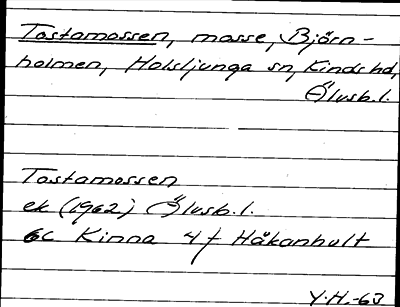 Tostamossen, mosse, Björn-
holmen, Holsljunga sn, Kinds hd,
Älvsb.l.
Tostamossen
ek (1962) Älvsb.l.
6C Kinna 4f Håkanhult
Y.H.-63